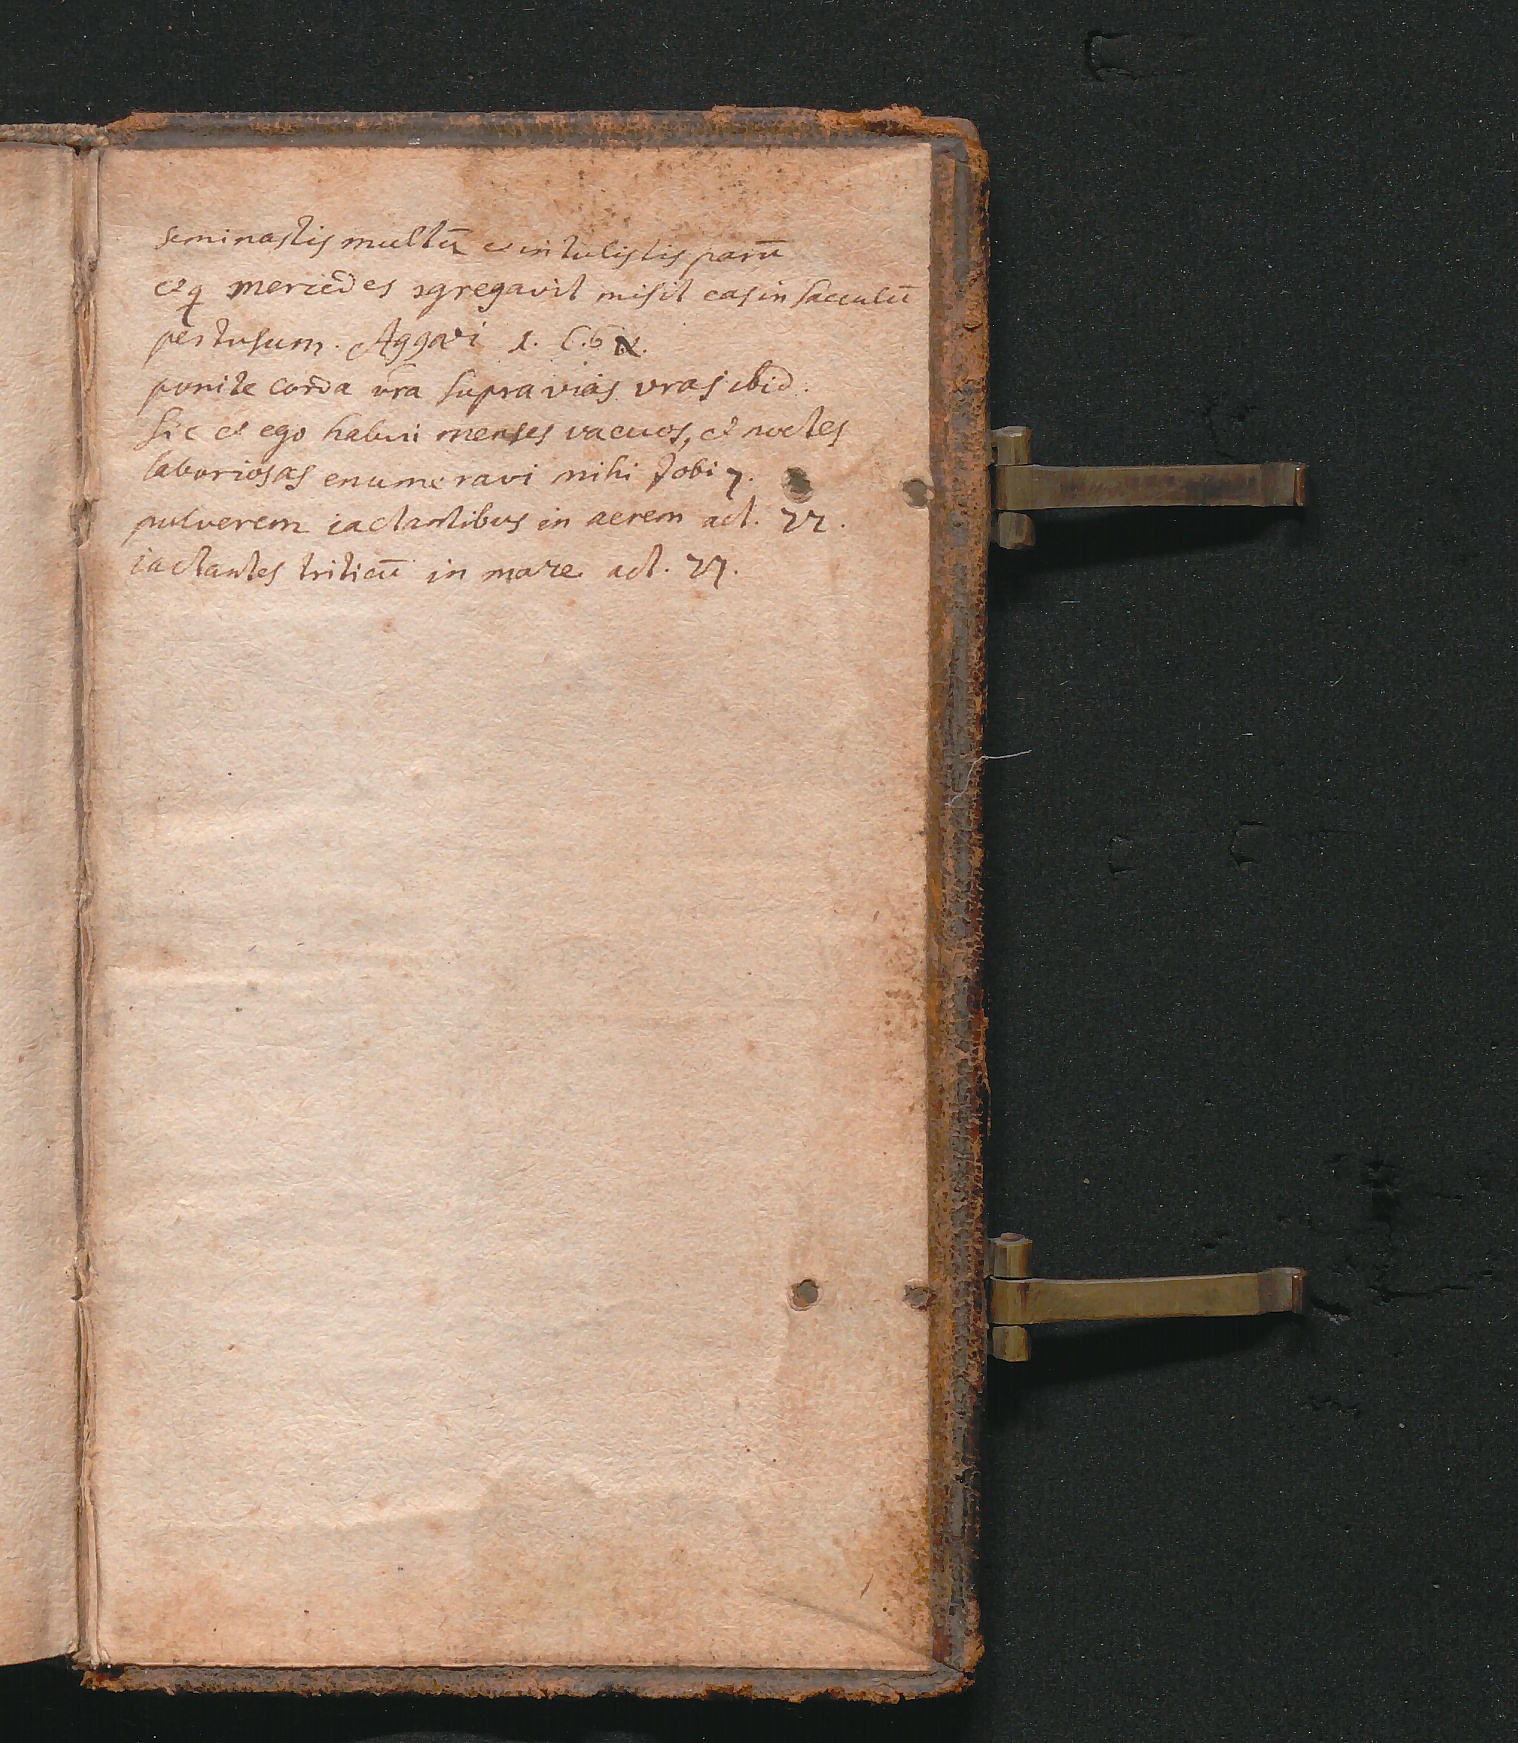 seminastis multū et intulistis parū
et q mercedes ɔgregavit misit eas in sacculū
pertusum. Aggæi 1. C. 6
ponite corda vr̄a supra vias vras ibid.
Sic et ego habui menses vacuos, et noctes
laboriosas enumeravi mihi Jobi 7.
pulverem iactantibus in aerem act. 22.
iactantes triticū in mare act. 27.